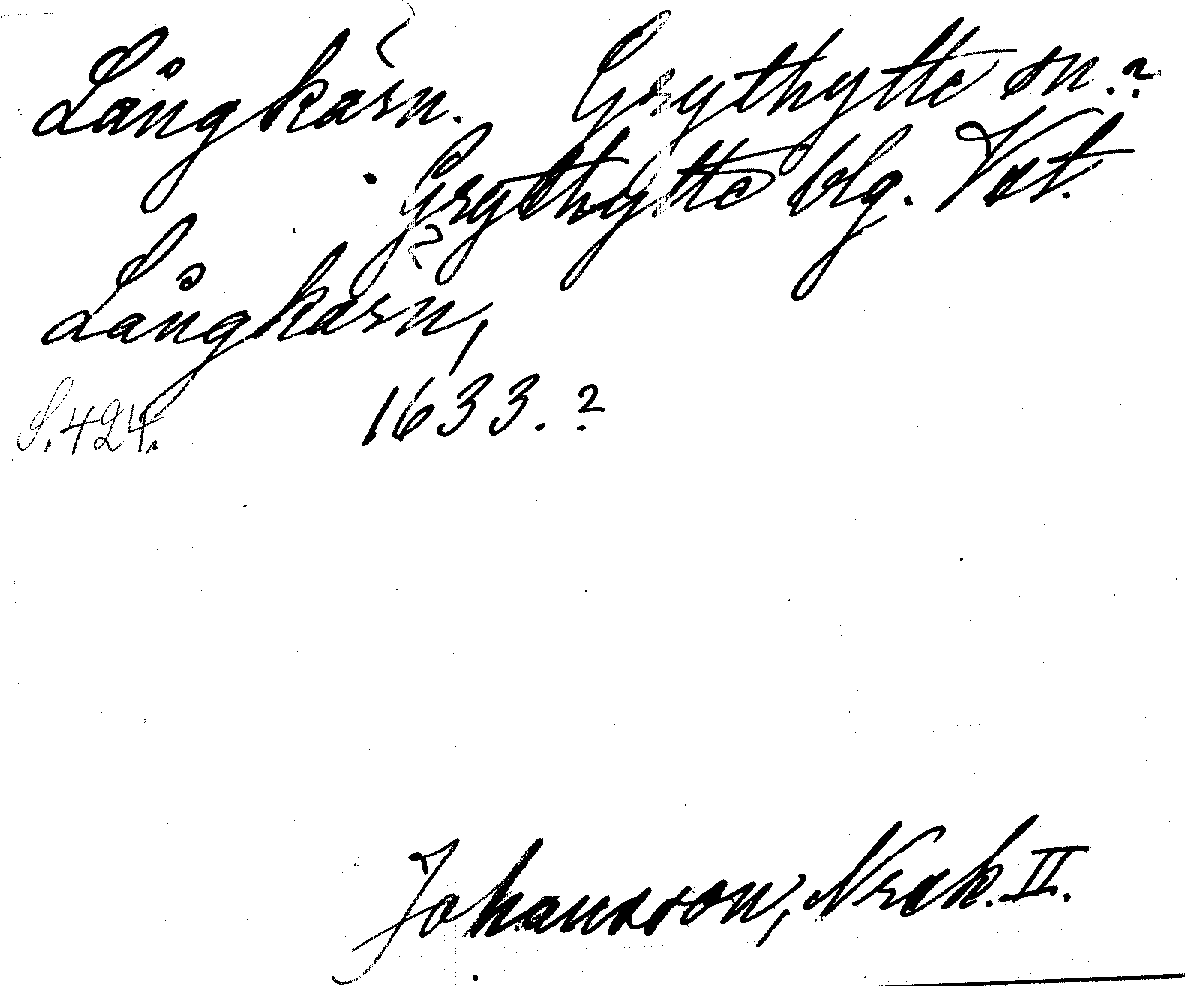 Långkärn. Grythytte sn.?
Grythytte blg. Vst.
Långkärn,
S. 424. 1633.?
Johansson, Norak. II.